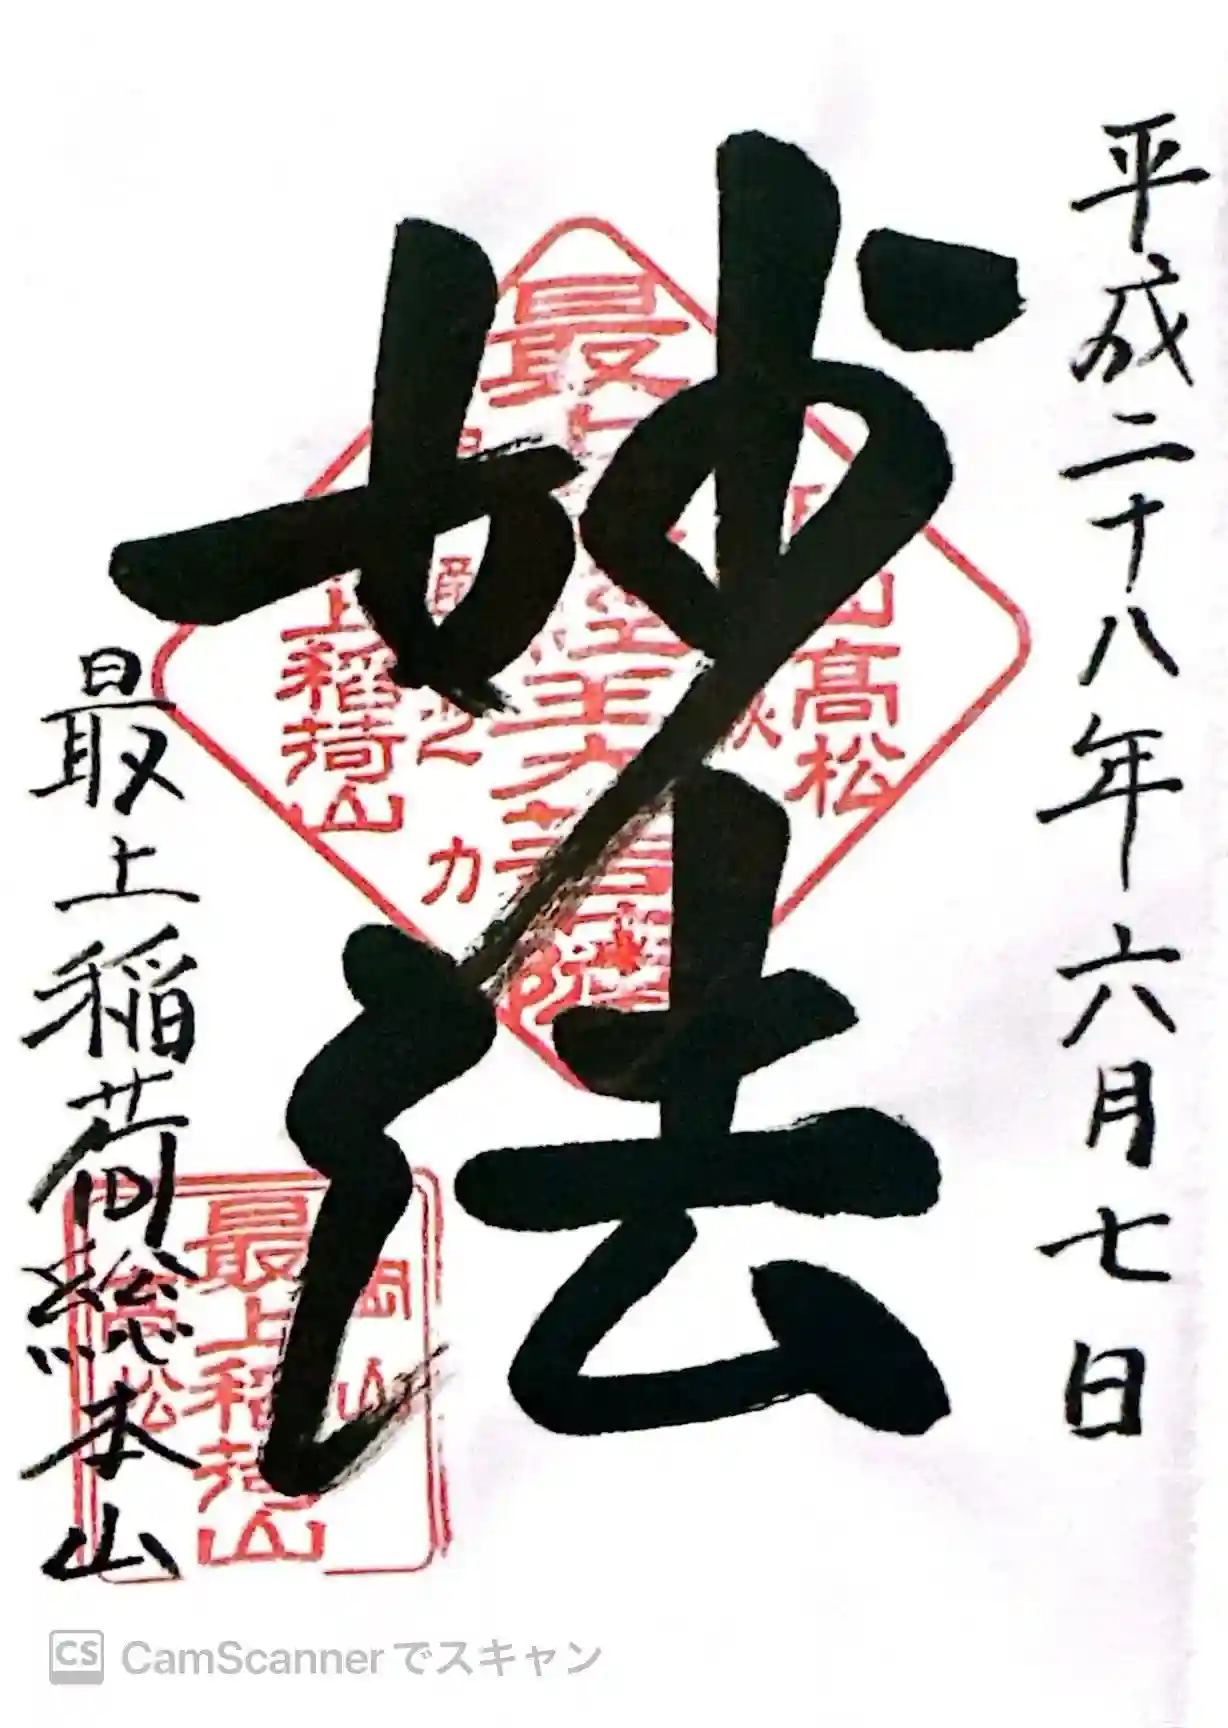 平成二十八年六月七日
妙法
最上稲荷総本山
高松
最上稲荷山
岡山
高松
最上稲荷山
力
CS CamScannerでスキャン